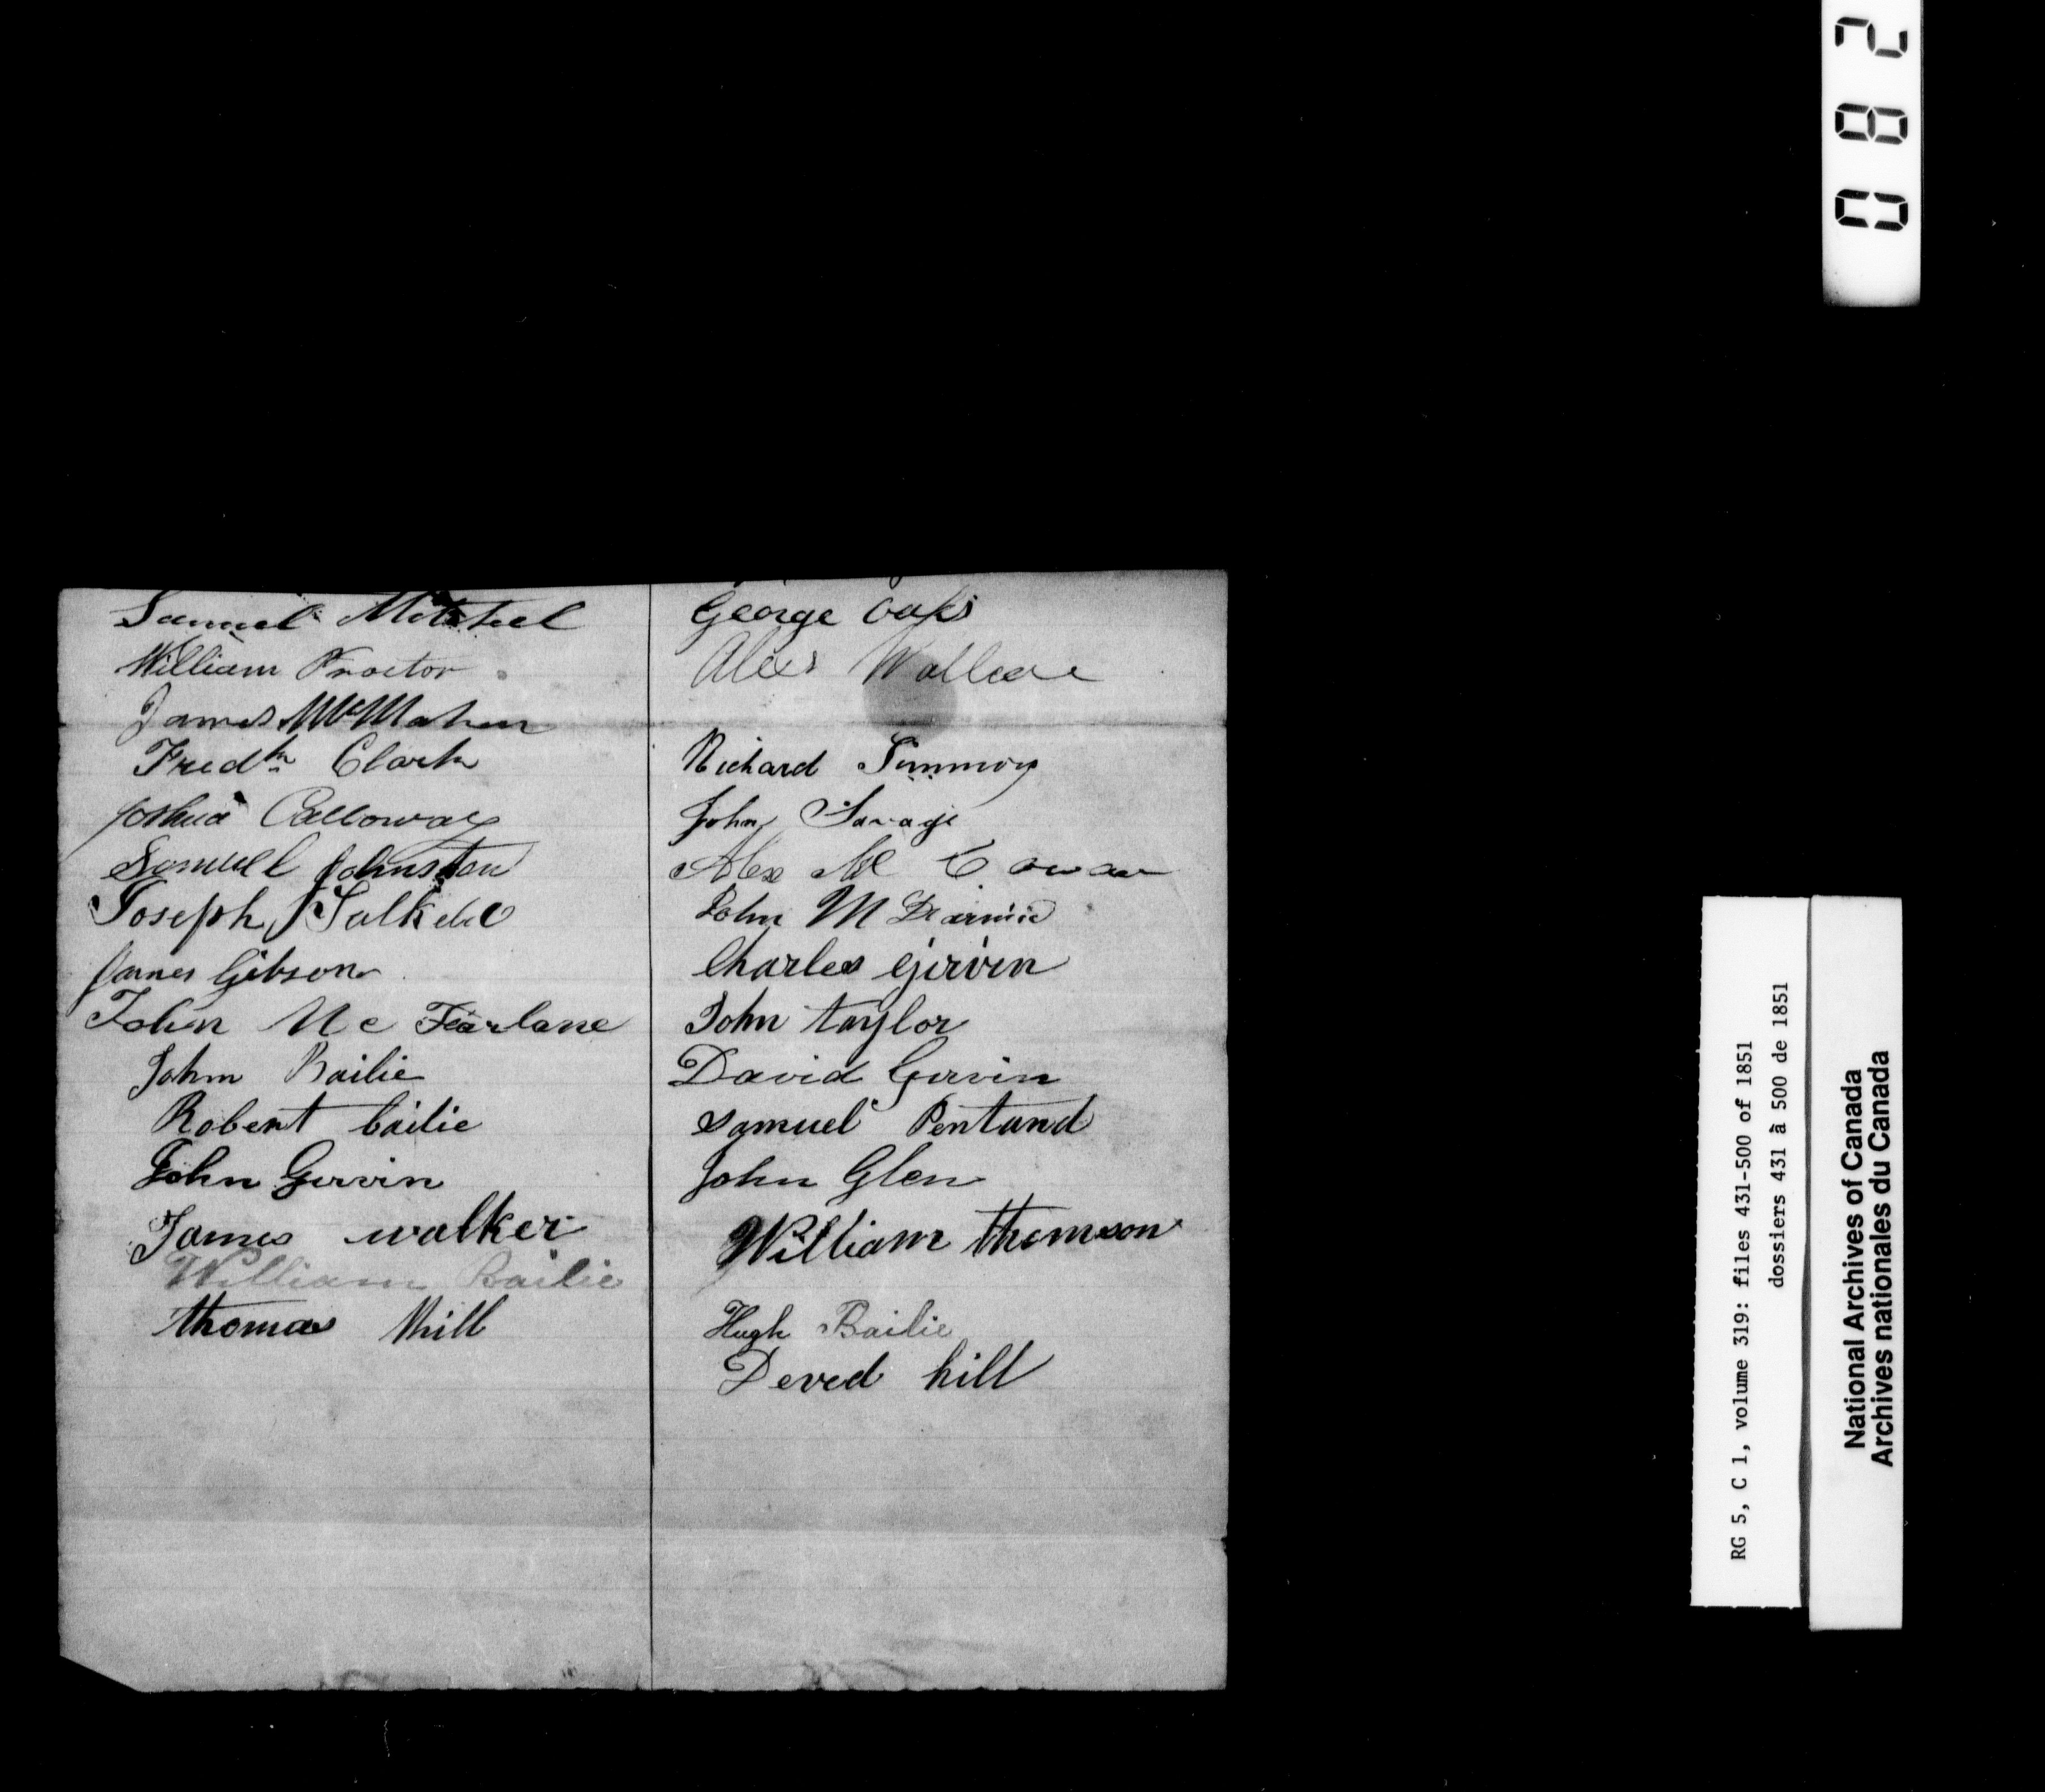 Samuel Mitchel
William Proctor
James McMahen
Fredk Clark
Joshua Calloway
Samuel Johnston
Joseph Salkeld
James Gibson
John Mc Farlane
John Bailie
Robert bailie
John Girvin
James walker
William Bailie
thomas hill
George Oaks
Alex Wallace
Richard Simmons
John Savage
Alex Mc Cowan
John M
Charles Girvin
John taylor
David Girvin
Samuel Pentland
John Glen
William thomson
Hugh Bailie
Deved hill
082
RG 5, C 1, volume 319: files 431-500 of 1851
dossiers 431 à 500 de 1851
National Archives of Canada
Archives nationales du Canada